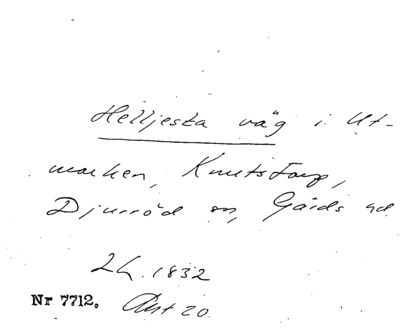 Helljeska väg i Ut-
marken, Knutstorp,
Djurröd sn, Gärds hd
2h. 1832
Nr 7712. Akt 20